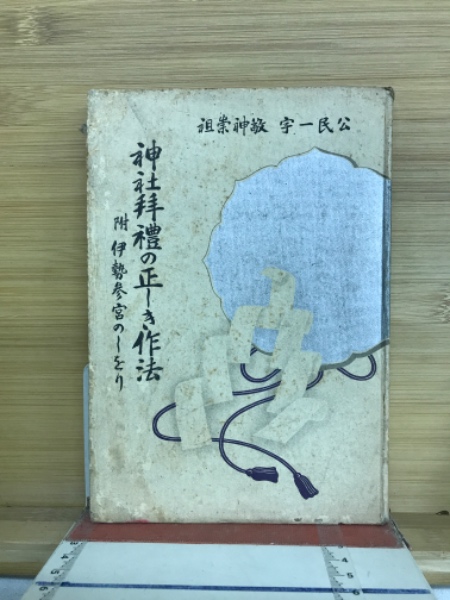 公民一宇 敬神崇祖
神社拜禮の正しき作法
附 伊勢參宮のしをり